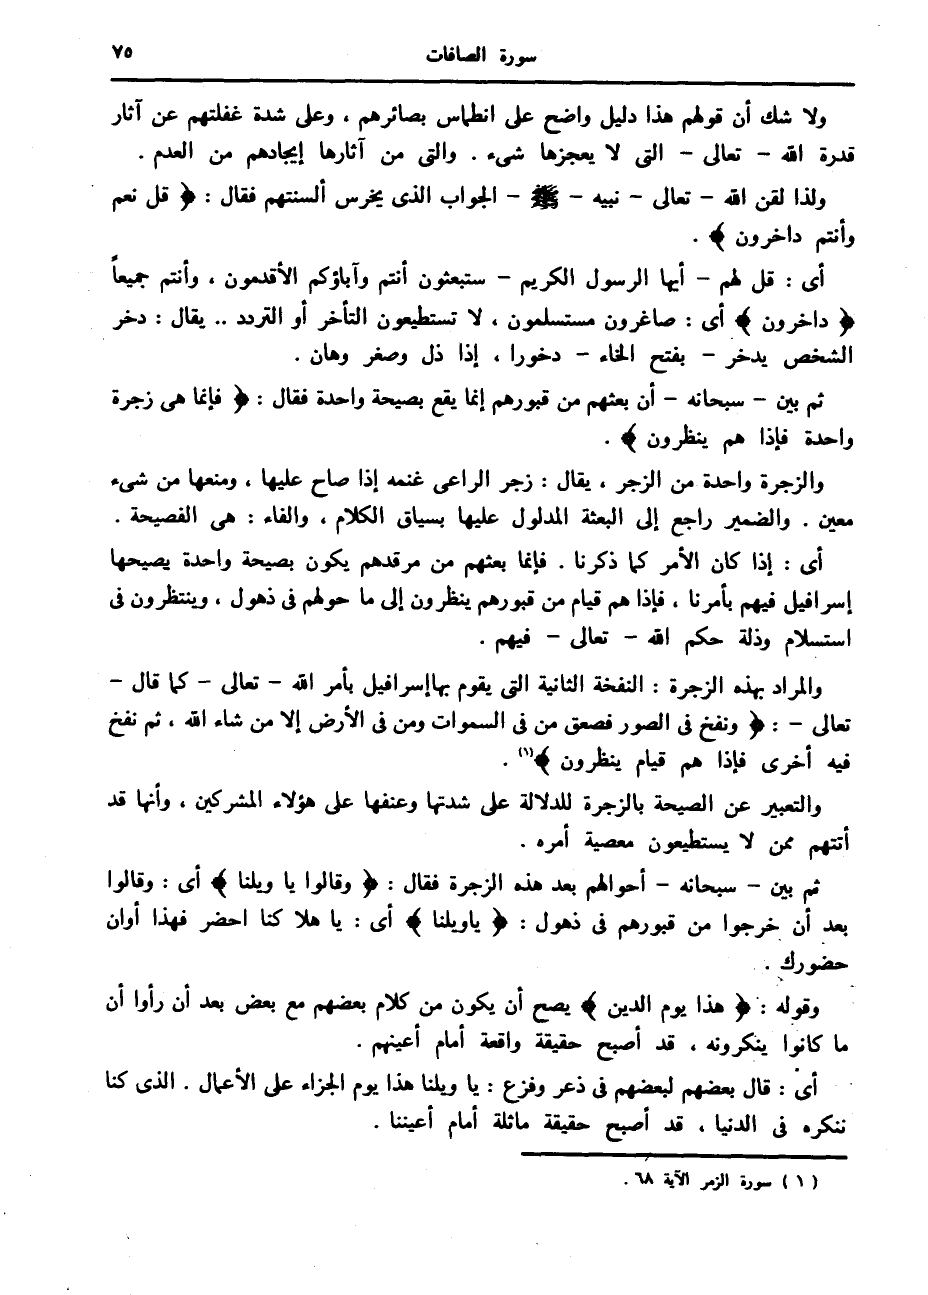 سورة الصافات ٧٥
ولا شك أن قولهم هذا دليل واضح على انطماس بصائرهم ، وعلى شدة غفلتهم عن آثار
قدرة الله – تعالى – التى لا يعجزها شىء . والتى من آثارها إيجادهم من العدم .
ولذا لقن الله – تعالى – نبيه – ﷺ – الجواب الذى يخرس ألسنتهم فقال : ﴿ قل نعم
وأنتم داخرون ﴾ .
أى : قل لهم – أيها الرسول الكريم – ستبعثون أنتم وآباؤكم الأقدمون ، وأنتم جميعاً
﴿ داخرون ﴾ أى : صاغرون مستسلمون ، لا تستطيعون التأخر أو التردد .. يقال : دخر
الشخص يدخر – بفتح الخاء – دخورا ، إذا ذل وصغر وهان .
ثم بين – سبحانه – أن بعثهم من قبورهم إنما يقع بصيحة واحدة فقال : ﴿ فإنما هى زجرة
واحدة فإذا هم ينظرون ﴾ .
والزجرة واحدة من الزجر ، يقال : زجر الراعى غنمه إذا صاح عليها ، ومنعها من شىء
معين . والضمير راجع إلى البعثة المدلول عليها بسياق الكلام ، والفاء : هى الفصيحة .
أى : إذا كان الأمر كما ذكرنا . فإنما بعثهم من مرقدهم يكون بصيحة واحدة يصيحها
إسرافيل فيهم بأمرنا ، فإذا هم قيام من قبورهم ينظرون إلى ما حولهم فى ذهول ، وينتظرون فى
استسلام وذلة حكم الله – تعالى – فيهم .
والمراد بهذه الزجرة : النفخة الثانية التى يقوم بهاإسرافيل بأمر الله – تعالى – كما قال –
تعالى – : ﴿ ونفخ فى الصور فصعق من فى السموات ومن فى الأرض إلا من شاء الله ، ثم نفخ
فيه أخرى فإذا هم قيام ينظرون ﴾(١) .
والتعبير عن الصيحة بالزجرة للدلالة على شدتها وعنفها على هؤلاء المشركين ، وأنها قد
أتتهم ممن لا يستطيعون معصية أمره .
ثم بين – سبحانه – أحوالهم بعد هذه الزجرة فقال : ﴿ وقالوا يا ويلنا ﴾ أى : وقالوا
بعد أن خرجوا من قبورهم فى ذهول : ﴿ ياويلنا ﴾ أى : يا هلا كنا احضر فهذا أوان
حضورك .
وقوله : ﴿ هذا يوم الدين ﴾ يصح أن يكون من كلام بعضهم مع بعض بعد أن رأوا أن
ما كانوا ينكرونه ، قد أصبح حقيقة واقعة أمام أعينهم .
أى : قال بعضهم لبعضهم فى ذعر وفزع : يا ويلنا هذا يوم الجزاء على الأعمال . الذى كنا
ننكره فى الدنيا ، قد أصبح حقيقة ماثلة أمام أعيننا .
( ١ ) سورة الزمر الآية ٦٨ .